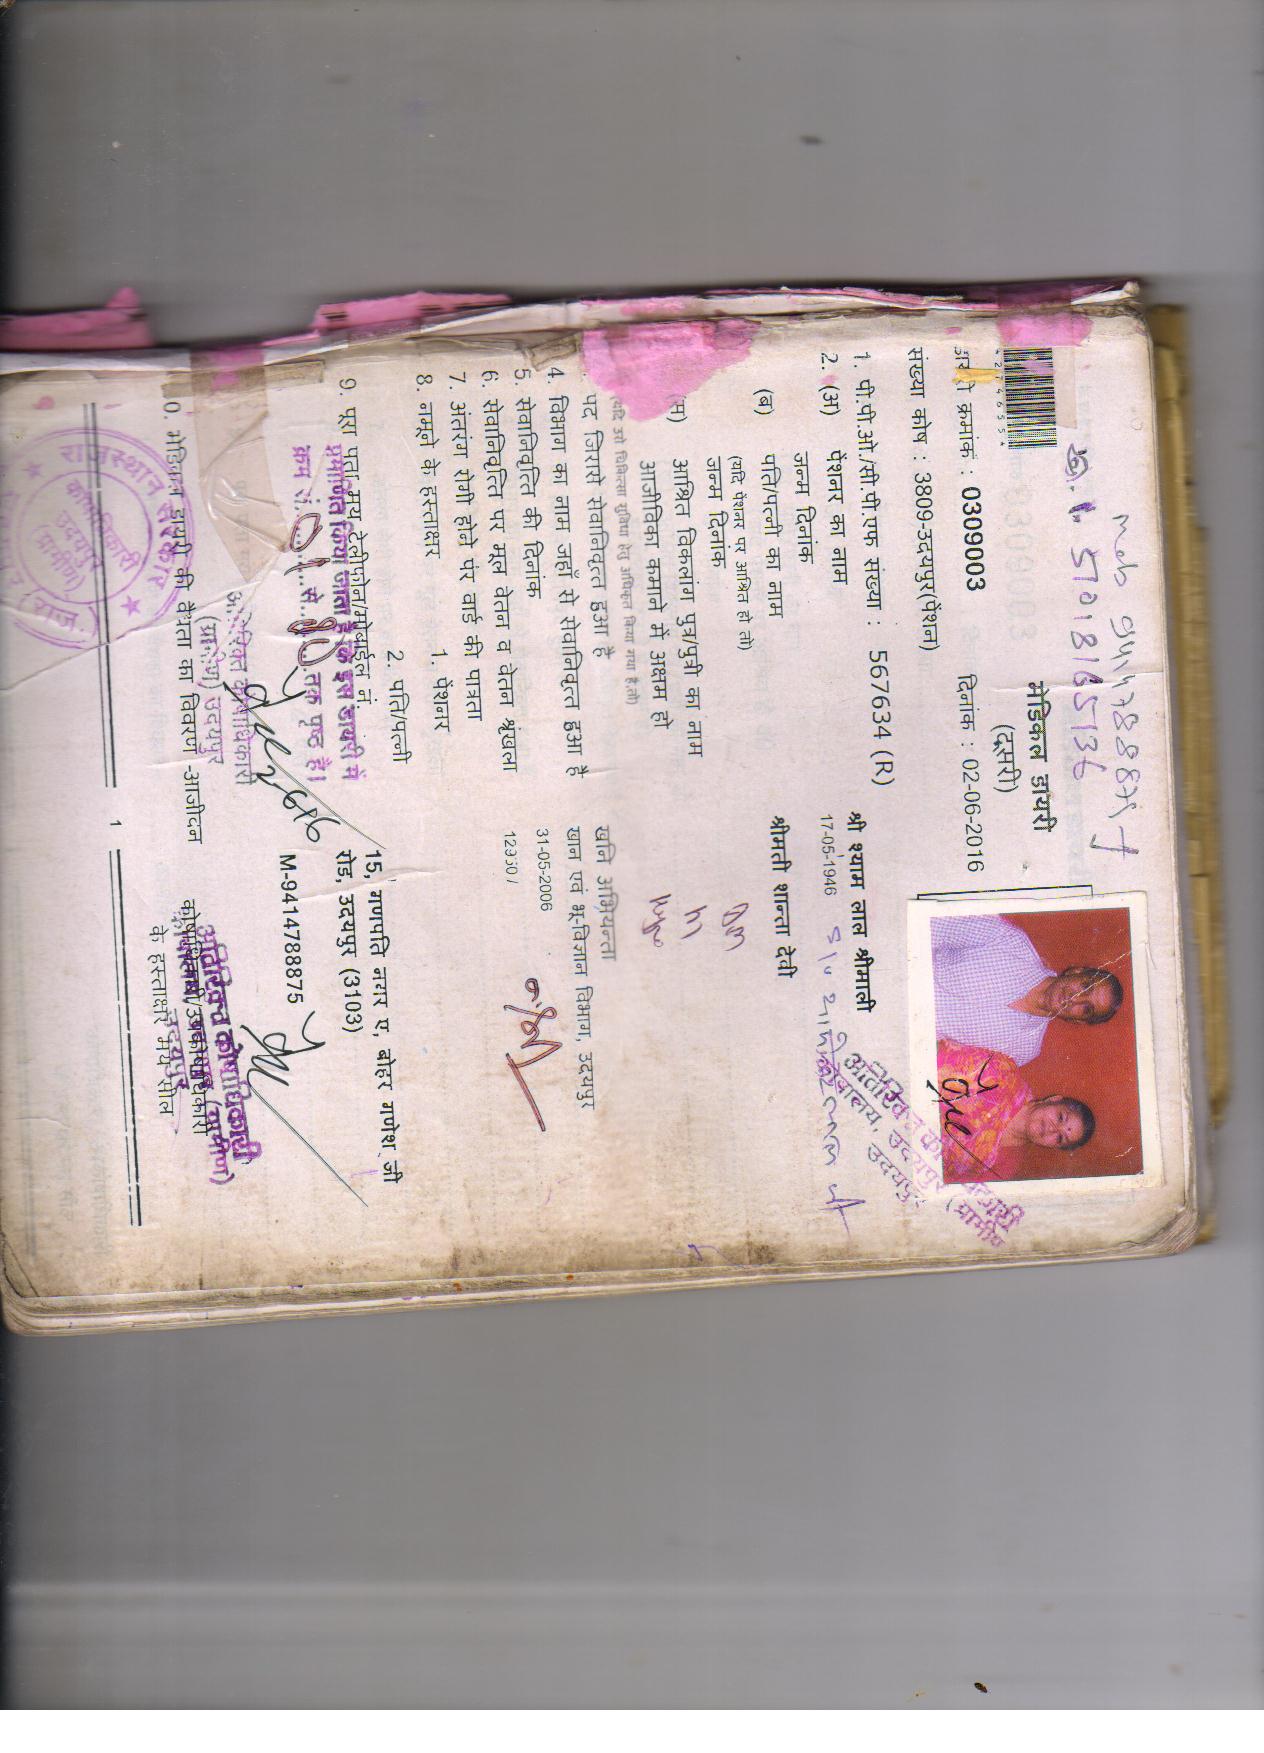 Mob 9414788875
5018165136
मेडिकल डायरी
(दूसरी)
डायरी क्रमांक : 0309003 दिनांक : 02-06-2016
संख्या कोष : 3809-उदयपुर(पेंशन)
1. पी.पी.ओ./सी.पी.एफ संख्या : 567634 (R)
2. (अ) पेंशनर का नाम श्री श्याम लाल श्रीमाली
जन्म दिनांक 17-05-1946
(ब) पति/पत्नी का नाम श्रीमती शान्ता देवी
(यदि पेंशनर पर आश्रित हो तो)
जन्म दिनांक
(स) आश्रित विकलांग पुत्र/पुत्री का नाम
आजीविका कमाने में अक्षम हो
(यदि उसे चिकित्सा सुविधा हेतु अधिकृत किया गया है.तो)
पद जिससे सेवानिवृत्त हुआ है खनि अभियन्ता
4. विभाग का नाम जहाँ से सेवानिवृत्त हुआ है खान एवं भू-विज्ञान विभाग, उदयपुर
5. सेवानिवृत्ति की दिनांक 31-05-2006
6. सेवानिवृत्ति पर मूल वेतन व वेतन श्रृंखला
7. अंतरंग रोगी होने पर वार्ड की पात्रता
8. नमूने के हस्ताक्षर 1. पेंशनर
2. पति/पत्नी
9. पूरा पता मय टेलीफोन/मोबाईल नं. 15, गणपति नगर ए, बोहर गणेश जी
रोड, उदयपुर (3103)
M-9414788875
प्रमाणित किया जाता है कि इस डायरी में
क्रम सं. 01 से 80 तक पृष्ठ है।
अतिरिक्त कोषाधिकारी
(ग्रामीण) उदयपुर
0. मेडिकल डायरी की वैधता का विवरण -आजीवन कोषाधिकारी/उपकोषाधिकारी
के हस्ताक्षर मय सील
अतिरिक्त कोषाधिकारी
उदयपुर (ग्रामीण)
उदयपुर
राजस्थान सरकार
कोषाधिकारी
उदयपुर
(ग्रामीण)
(राज.)
1